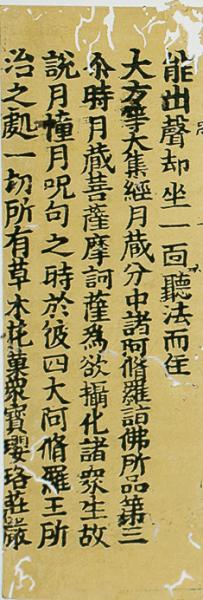 能出聲却坐一面聽法而住
大方等大集經月藏分中諸阿脩羅詣佛所品第三
尒時月藏菩薩摩訶薩為欲攝化諸眾生故
說月幢月呪句之時於彼四大阿脩羅王所
治之處一切所有草木花菓眾寶瓔珞莊嚴